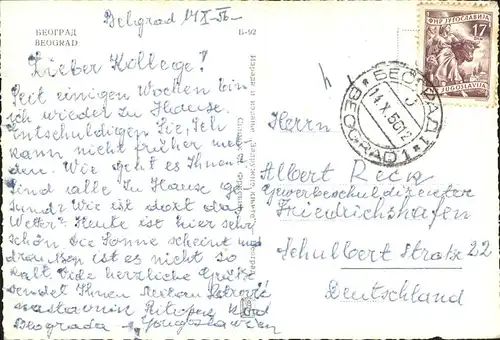 Belgrad 14 X 56
БЕОГРАД
BEOGRAD
B-92
Lieber Kollege!
Seit einigen Wochen bin
ich wieder zu Hause.
Entschuldigen Sie, Ich
kann nicht früher mel-
den. Wie geht es Ihnen?
Sind alle zu Hause ge
sund? Wie ist dort das
Wetter? Heute ist hier sehr
schön die Sonne scheint und
draußen ist es nicht so
kalt. Viele herzliche Grüße
sendet Ihnen Petrović
nastavnik kod
Beograda Jugoslawien
ФНР ЈУГОСЛАВИЈА
17
JUGOSLAVIJA
БЕОГРАД 1
14.X.56 12
BEOGRAD 1
Herrn
Albert Reck
Gewerbeschuldirektor
Friedrichshafen
Schulbert Straße 22
Deutschland